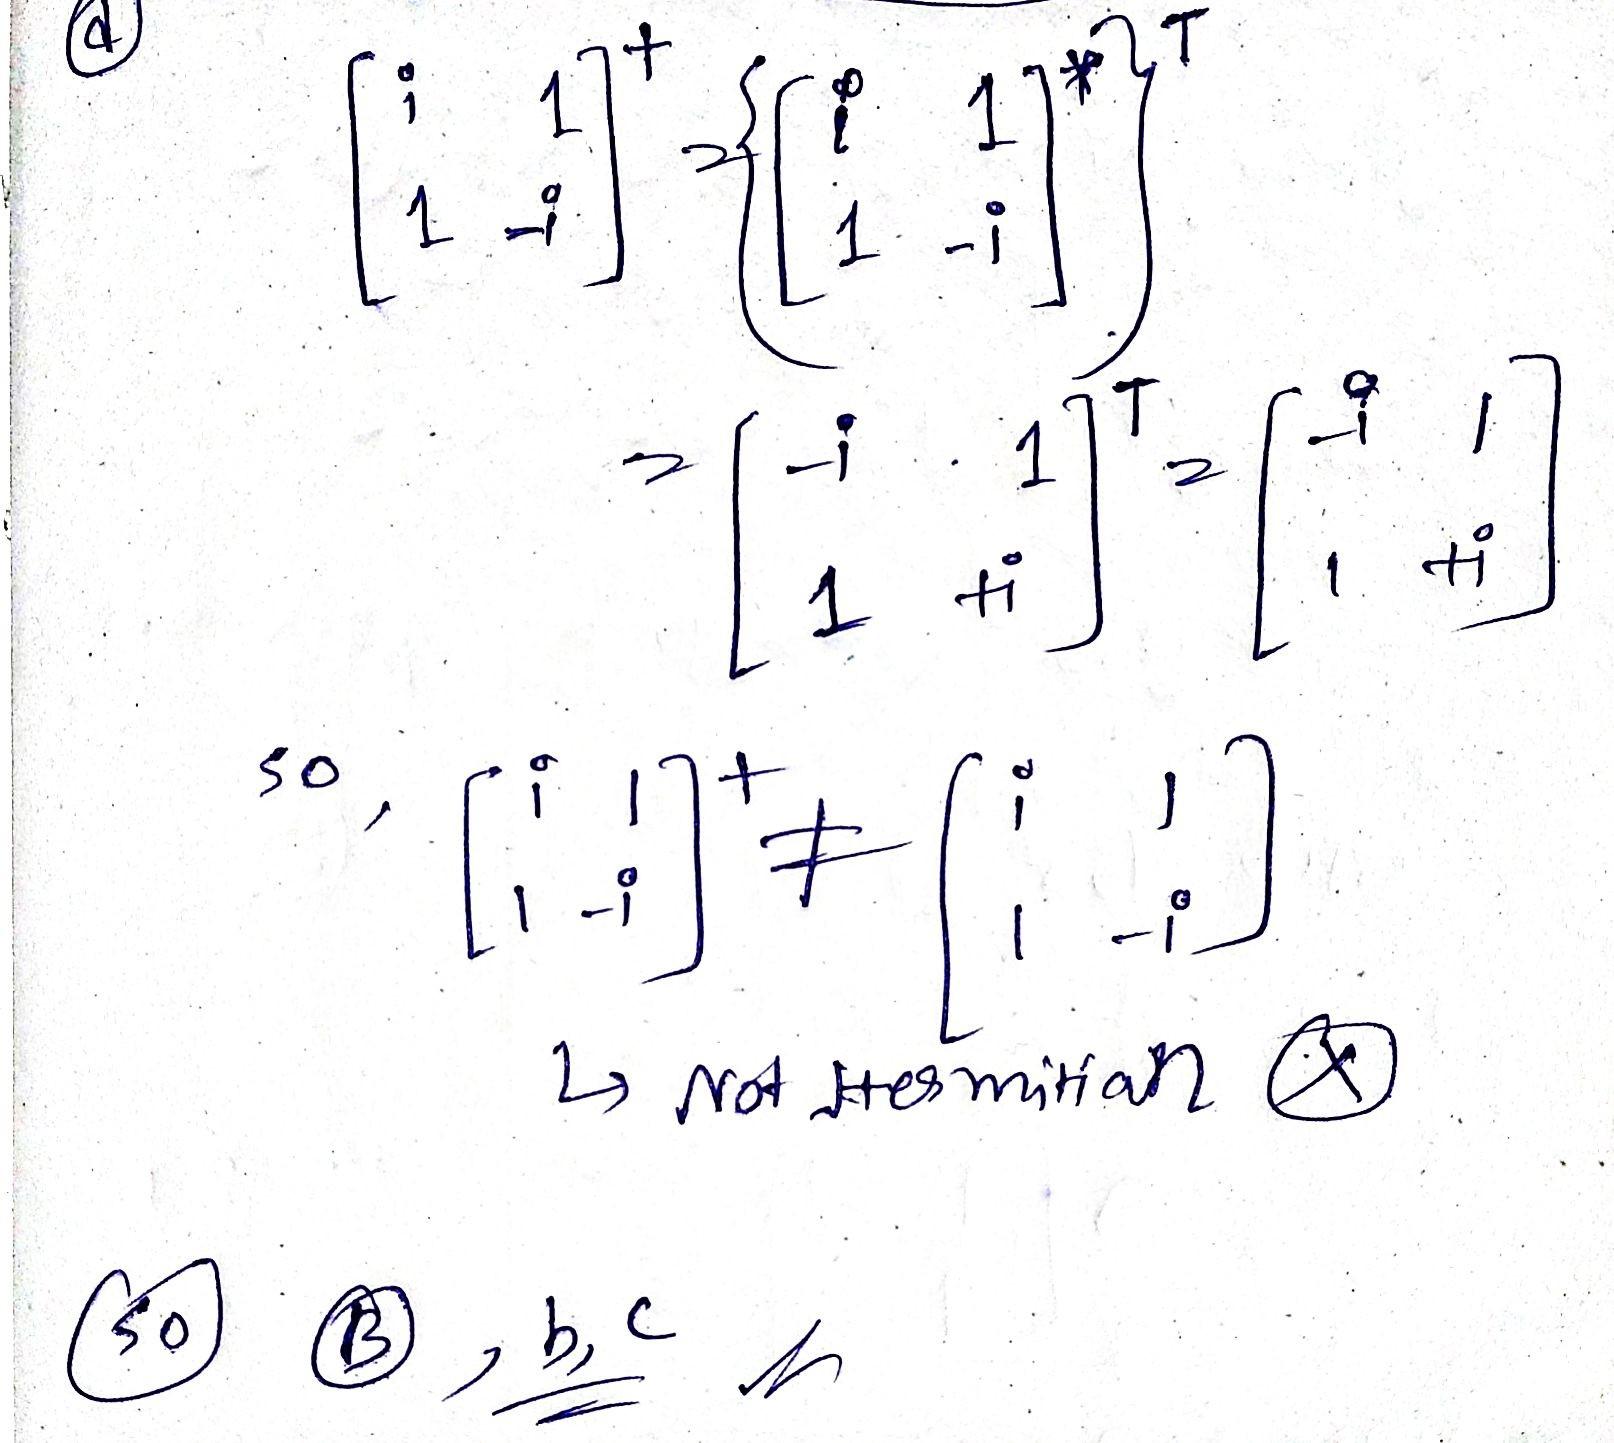 (d)
[i 1; 1 -i]^+ = {[i 1; 1 -i]^*}^T
= [-i 1; 1 +i]^T = [-i 1; 1 +i]
so, [i 1; 1 -i]^+ ≠ [i 1; 1 -i]
↳ Not Hermitian (X)
(so) (B), b, c